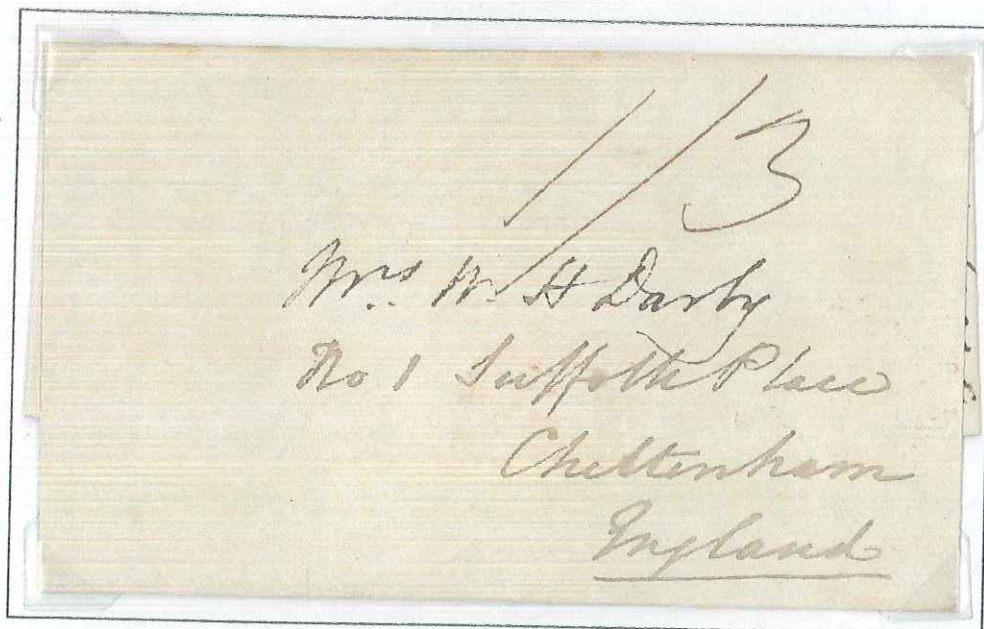 1/3
Mrs. W. H Darby
No 1 Suffolk Place
Cheltenham
England